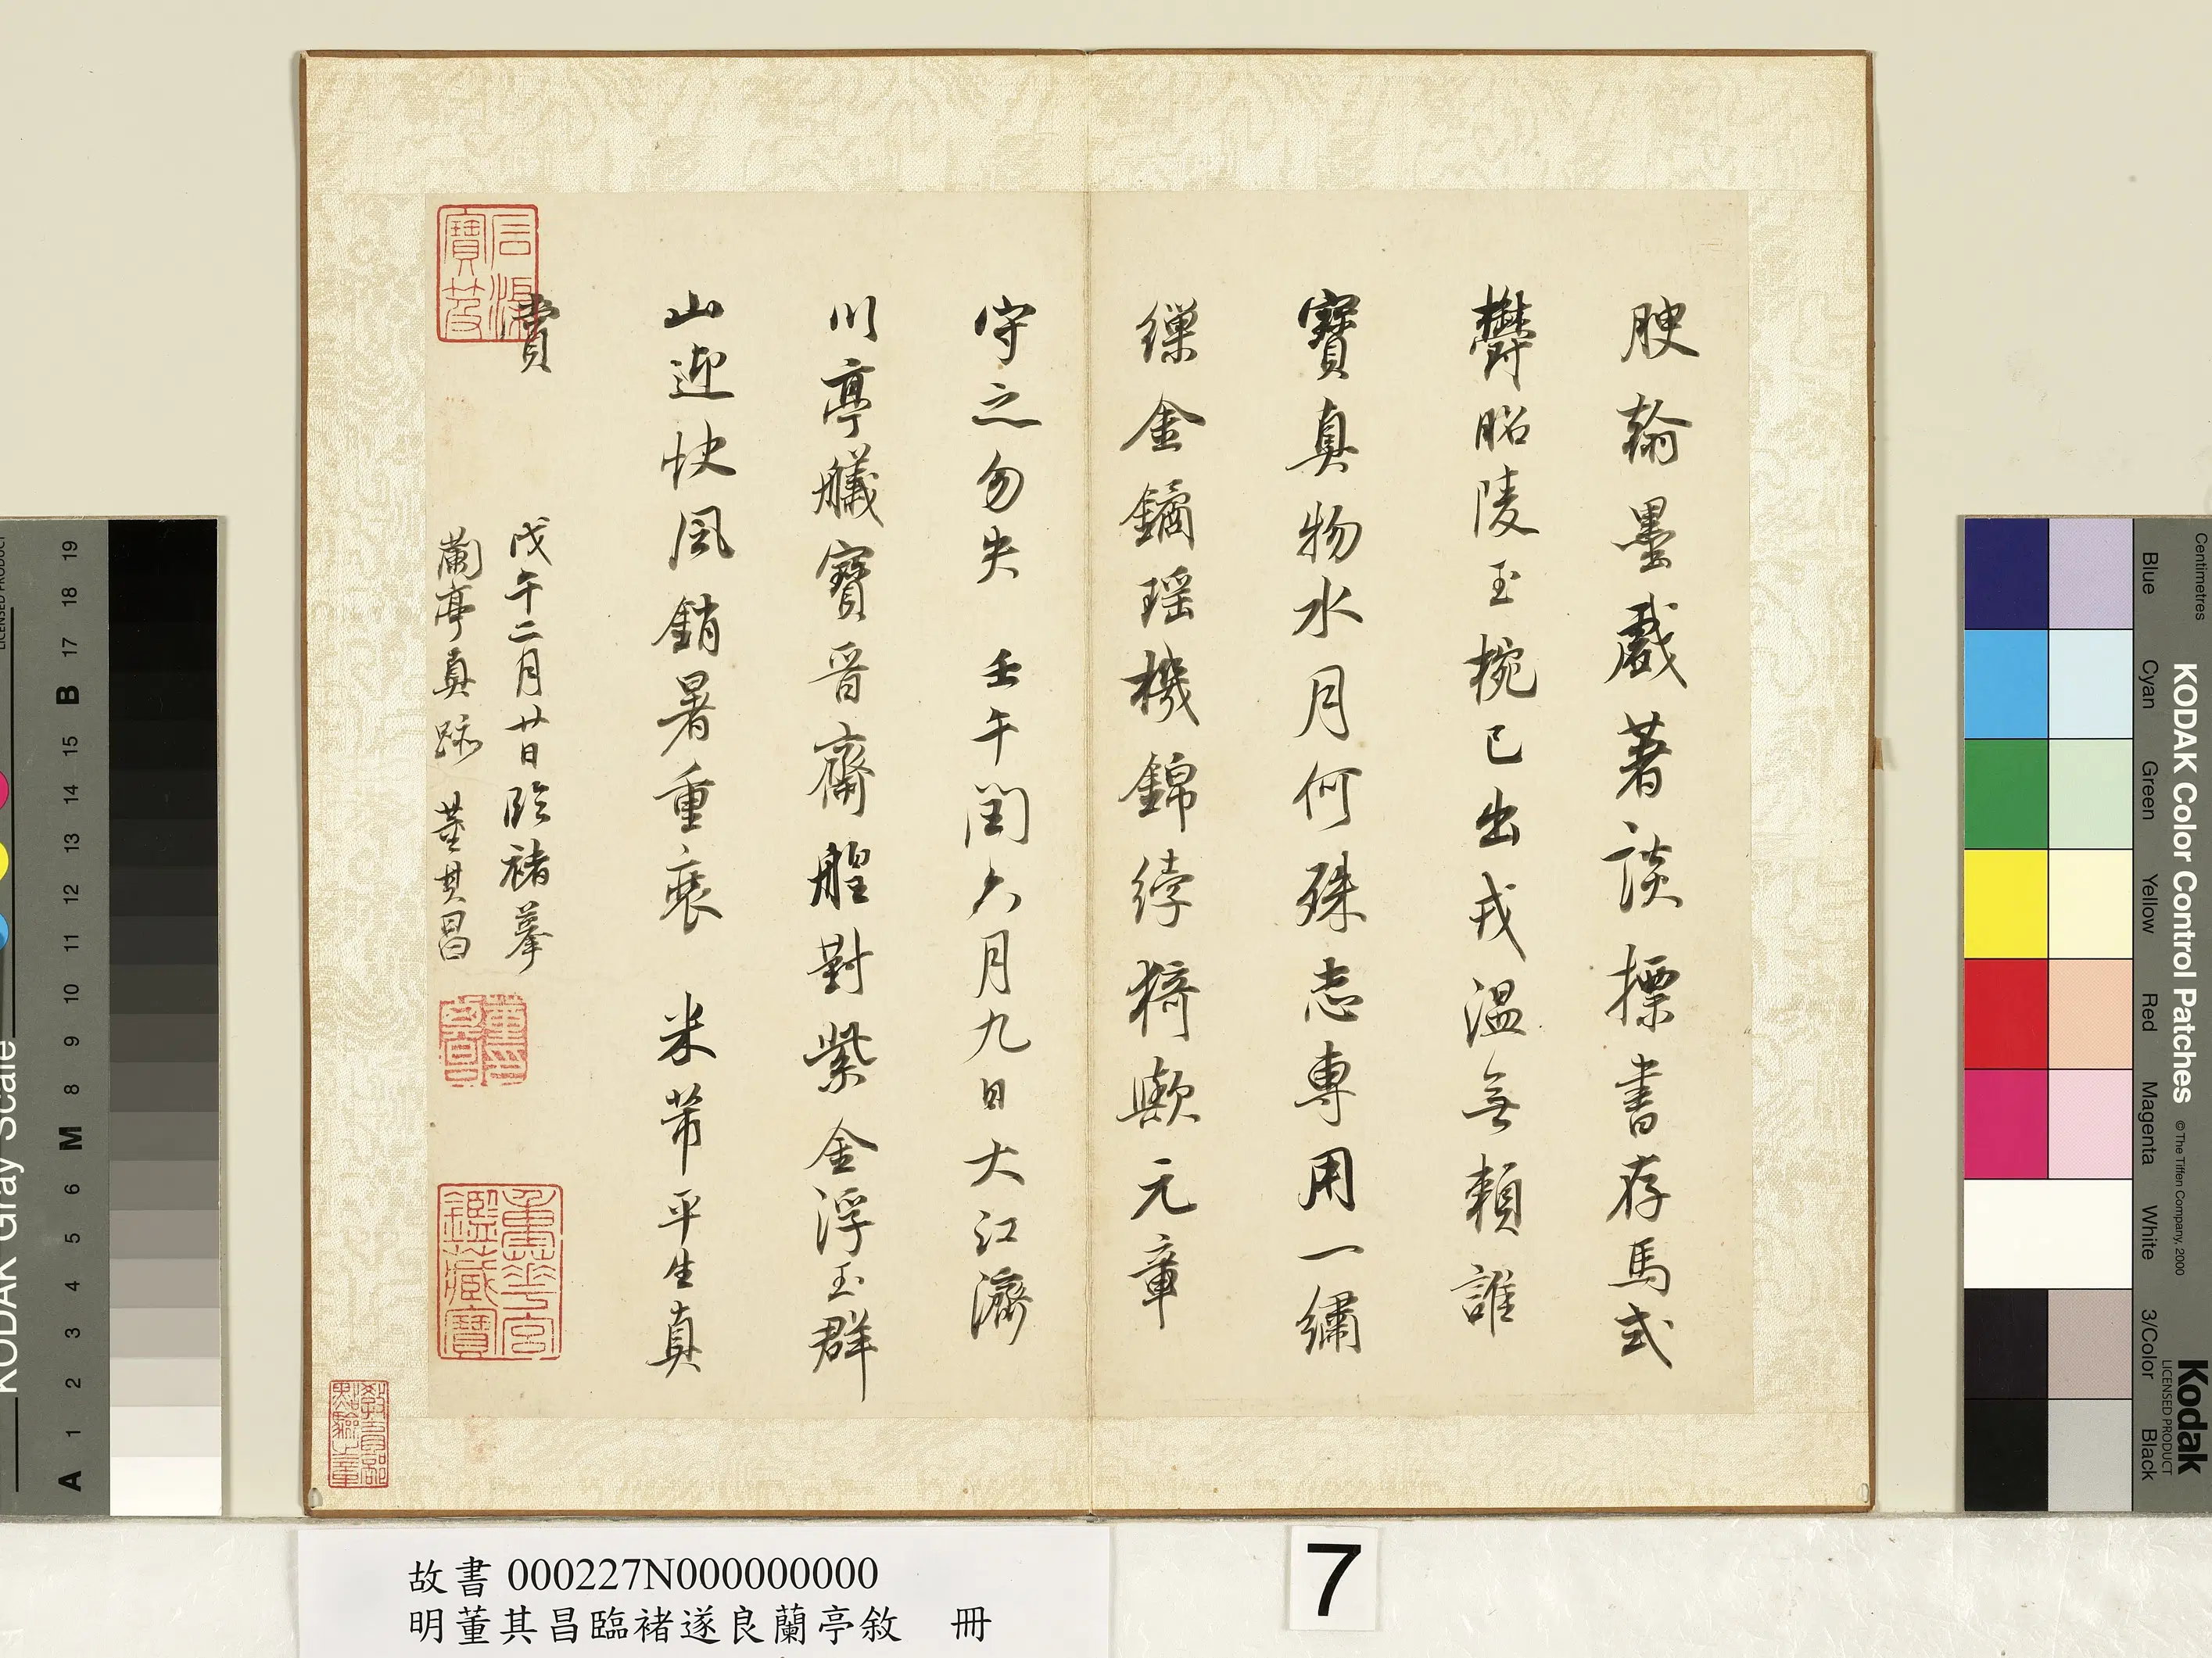 腴翰墨戲著談摽書存馬式
欝昭陵玉椀已出戎溫無頼誰
寶真物水月何殊志專用一繡
繅金鐍瑶機錦綍猗歟元章
守之勿失 壬午閏六月九日大江濟
川亭艤寶晉齋艎對紫金浮玉群
山迎快風銷暑重裝 米芾平生真
賞
戊午二月廿日臨褚摹
蘭亭真跡 董其昌
重華宮
鑑藏寶
故書 000227N000000000
明董其昌臨褚遂良蘭亭敘 冊
7
KODAK Gray Scale
A 1 2 3 4 5 6 M 8 9 10 11 12 13 14 15 B 17 18 19
KODAK Color Control Patches
© The Tiffen Company, 2000
Kodak
LICENSED PRODUCT
Centimetres
Blue Cyan Green Yellow Red Magenta White 3/Color Black